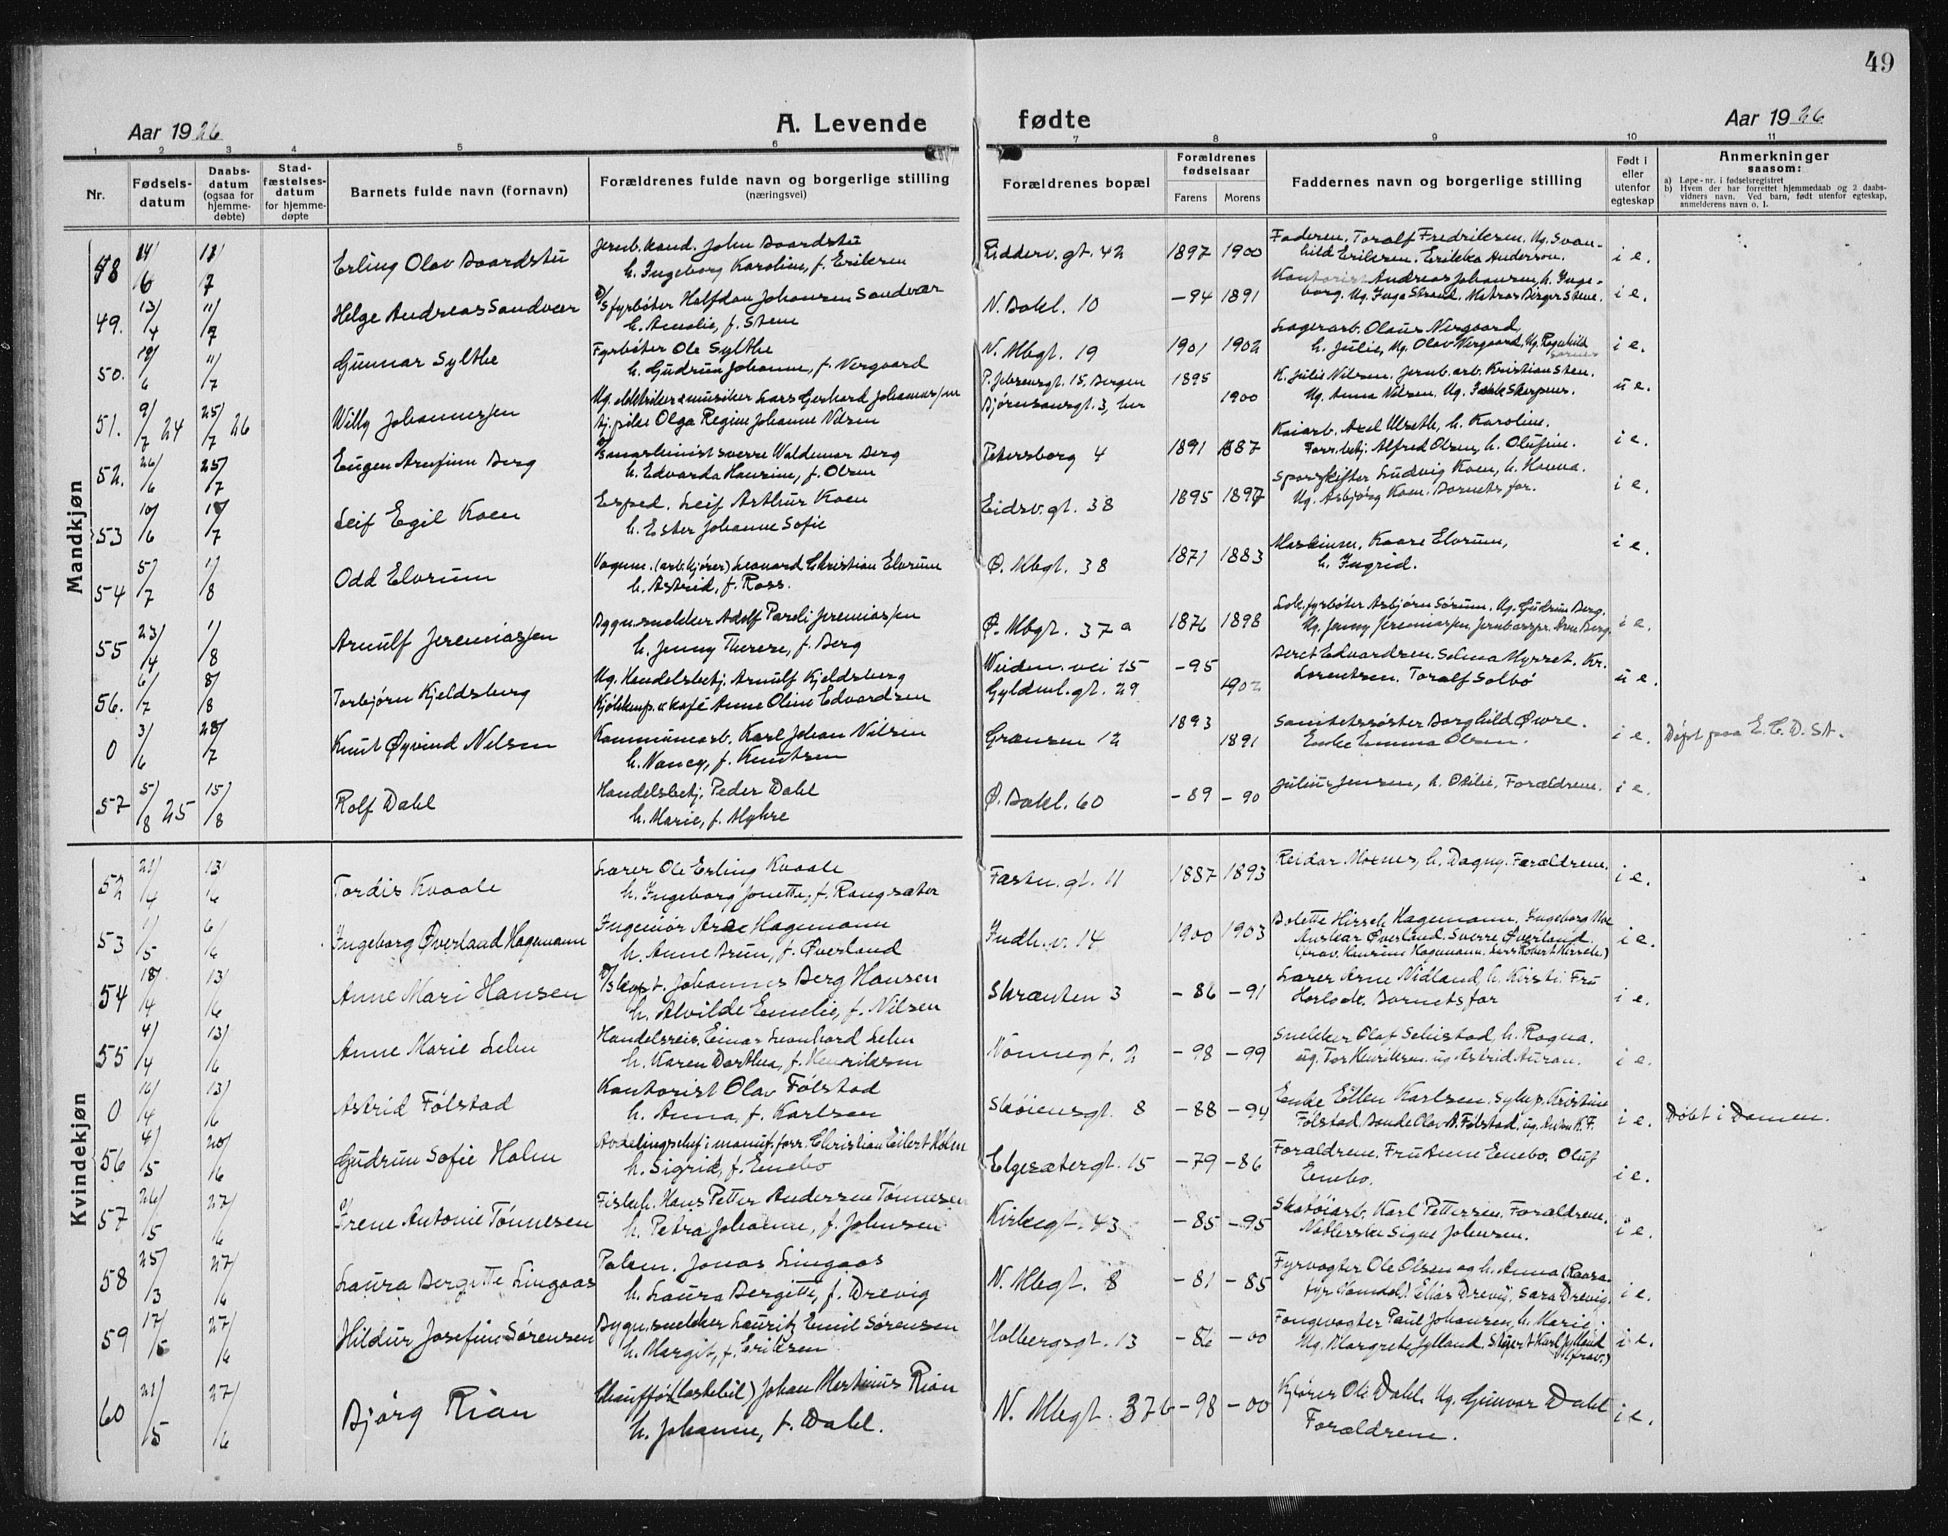 49
Aar 1926
A. Levende fødte
Aar 1926
1 2 3 4 5 6 7 8 9 10 11
Nr.
Fødsels-
datum
Daabs-
datum
(ogsaa for
hjemme-
døbte)
Stad-
fæstelses-
datum
for hjemme-
døpte
Barnets fulde navn (fornavn)
Forældrenes fulde navn og borgerlige stilling
(næringsvei)
Forældrenes bopæl
Forældrenes
fødselsaar
Farens Morens
Faddernes navn og borgerlige stilling
Født i
eller
utenfor
egteskap
Anmerkninger
saasom:
a) Løpe-nr. i fødselsregistret
b) Hvem der har forrettet hjemmedaab og 2 daabs-
vidners navn. Ved barn, født utenfor egteskap,
anmelderens navn o. l.
Mandkjøn
48 14/6 Erling Olav Baardstu
Jernb.kond. John Baardstu
h. Ingeborg Karoline, f. Eriksen
Ridderv. gt. 42 1897 1900
Faderen. Toralf Fredriksen. Ug. Svan-
hild Eriksen. Erikka Anderson. i e.
49. 13/4 11/7 Helge Andreas Sandvær
D/S fyrbøter Halfdan Johansen Sandvær
h. Amalie, f. Stene
N. Bakl. 10 -94 1891
Kontorist Andreas Johansen, h. Inge-
borg. Ug. Inga Strand. Matros Birger Stene. i e.
50. 19/6 11/7 Gunnar Sylthe
Fyrbøter Ole Sylthe
h. Gudrun Johanne, f. Vergaard
N. Mbgt. 19 1901 1902
Lagerarb. Olaus Vergaard,
h. Julie, Ug. Olav Vergaard, Ug. Ragnhild i e.
51. 9/7 24 25/7 26 Willy Johannessen
Ug. elektriker & musiker Lars Gerhard Johannessen
tj.pike Olga Regine Johanne Nilsen
P. Jebsensgt. 15, Bergen 1895
Bjørnsonsgt. 3, her 1900
K. Julie Nilsen. Jernb.arb. Kristian Sten.
Ug. Anna Nilsen. Ug. u e.
52. 26/6 25/7 Eugen Arnfinn Berg
Sverre Waldemar Berg
h. Edvarda Hansine, f. Olsen
Petersborg 4 1891 1887
Kaiarb. Axel Ulseth, h. Karoline.
Forr.betj. Alfred Olsen, h. Olufine. i e.
53 10/6 Leif Egil Koen
Exped. Leif Arthur Koen
h. Ester Johanne Sofie
Eidsv. gt. 38 1895 1897
Sporskifter Ludvig Koen, h. Hanna.
Ug. Asbjørg Koen. Barnets far. i e.
54 5/7 1/8 Odd Elvrum
Vognm. (arb.kjører) Leonard Christian Elvrum
h. Astrid, f. Ross.
Ø. Mbgt. 38 1871 1883
Maskinm. Kaare Elvrum,
h. Ingrid. i e.
55 23/4 1/8 Arnulf Jeremiassen
Bygn.snekker Adolf Pareli Jeremiassen
h. Jenny Therese, f. Berg
Ø. Mbgt. 37 a 1876 1898
Lok.fyrbøter Asbjørn Sørum. Ug. Gudrun Berg.
Ug. Jenny Jeremiassen. Jernb.asp. Arne Berg. i e.
56. 6/7 8/8 Torbjørn Kjeldsberg
Ug. Handelsbetj. Arnulf Kjeldsberg
Kjøkkenp. v. kafé Anne Oline Edvardsen
Weidem. vei 15 -95
Gyldenl. gt. 29 1902
Beret Edvardsen. Selma Myrset. Kr.
Lorentsen. Toralf Solbø u e.
0 3/6 28/7 Knut Øyvind Nilsen
Kommunearb. Karl Johan Nilsen
h. Nancy, f. Knutsen
Grænsen 12 1893 1891
Sanitetssøster Borghild Øvre.
Enke Emma Olsen. i e. Døpt paa E. C. D. St.
57 5/8 25 15/8 Rolf Dahl
Handelsbetj. Peder Dahl
h. Marie, f. Myhre
Ø. Bakl. 60 -89 -90
Julius Jensen, h. Otilie, Forældrene. i e.
Kvindekjøn
52 21/4 13/6 Tordis Kvaale
Lærer Ole Erling Kvaale
h. Ingeborg Jonette, f. Rangsæter
Fæstn. gt. 11 1887 1893
Reidar Moxnes, h. Dagny. Forældrene. i e.
53 1/5 6/6 Ingeborg Øverland Hagemann
Ingeniør Hagemann
h. Anne Arun, f. Øverland
Indh. v. 14 1900 1903
Bolette Hirsch Hagemann, Ingeborg
Anskar Øverland. Sverre Øverland
(frav. Hansine Hagemann. Lars Robert Hirsch) i e.
54 18/4 13/6 Anne Mari Hansen
Johannes Berg Hansen
h. Alvilde Emelie, f. Nilsen
Skrænten 3 -86 -91
Lærer Arne Nidland, h. Kirsti. Fru
Barnets far i e.
55 4/4 13/6 Anne Marie Lehn
Handelsreis. Einar Leonhard Lehn
h. Karen Dorthea, f. Henriksen
Nonnegt. 2 -98 -99
Snekker Olaf Schistad, h. Ragna.
ug. Tor Henriksen. ug. Astrid Auran. i e.
0 16/4 13/6 Astrid Følstad
Kontorist Olav Følstad
h. Anna, f. Karlsen
Skøiensgt. 8 -88 -94
Enke Ellen Karlsen. Syerp. Kristine
Følstad. Bonde Olav A. Følstad, ug. i e. Døbt i Domen.
56 4/5 20/6 Gudrun Sofie Holm
Avdelingschef i manuf. forr. Christian Eilert Holm
h. Sigrid, f. Enebo
Elgesætergt. 15 -79 -86
Forældrene. Fru Anne Enebo. Oluf
Enebo. i e.
57 26/5 27/6 Irene Antonie Tønnesen
Fiskeh. Hans Petter Andersen Tønnesen
h. Petra Johanne, f. Johnsen
Kirkegt. 43 -85 -95
Skotøiarb. Karl Pettersen. Forældrene.
Signe Johnsen. i e.
58 25/3 27/6 Laura Bergitte Lingaas
Jonas Lingaas
h. Laura Bergitte, f. Drevig
N. Mbgt. 8 -81 -85
Fyrvogter Ole Olsen og h. Anna
Elias Drevig. Sara Drevig. i e.
59 17/5 27/6 Hildur Josefine Sørensen
Bygn.snekker Lauritz Emil Sørensen
h. Margit, f. Eriksen
Holbergsgt. 13 -86 -00
Fangevogter Paul Johansen, h. Marie.
Ug. Margrete Jylland. Karl Jylland
(frav.) i e.
60 21/5 27/6 Bjørg Rian
Chauffør (lastebil) Johan Martinus Rian
h. Johanne, f. Dahl.
N. Mbgt. 37 b -98 -00
Kjører Ole Dahl. Ug. Gunvor Dahl
Forældrene. i e.